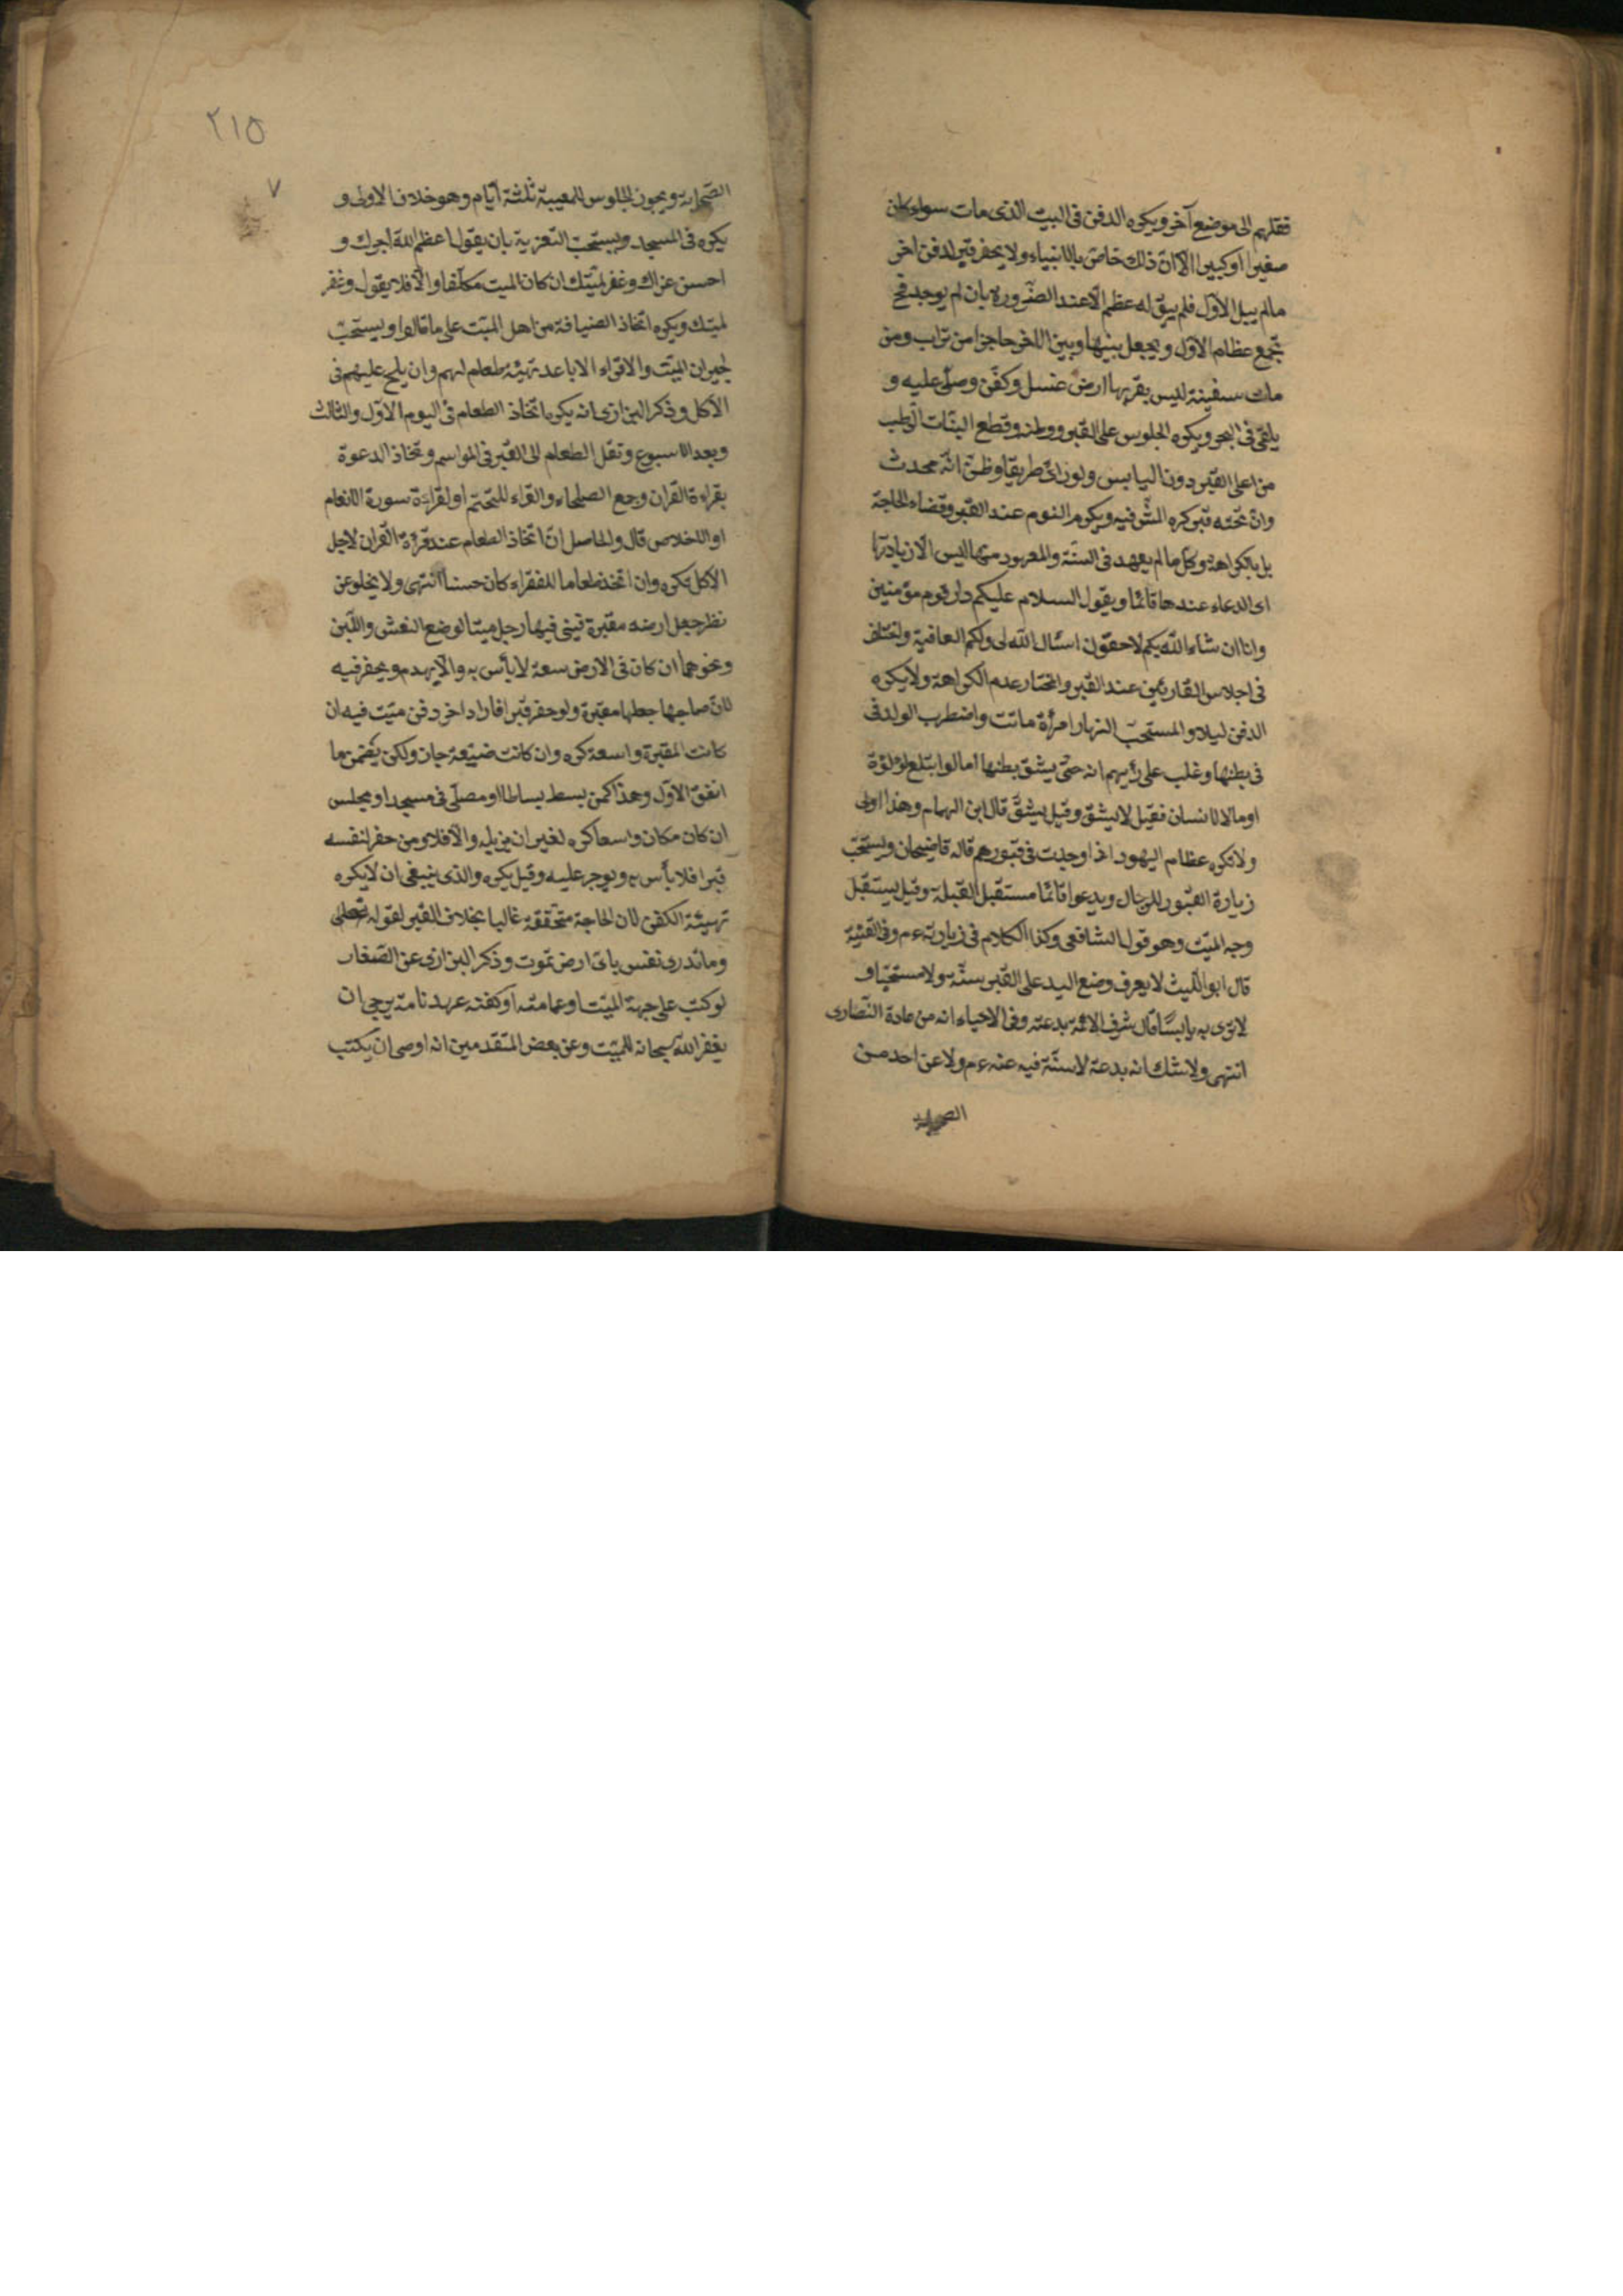 فنقلهم الى موضع آخر ويكره الدفن فى البيت الذى مات سواء كان
صغيرا او كبيرا الا ان ذلك خاص بالانبياء ولا يحفر قبر لدفن اخر
مالم يبل الاول فلم يبق له عظم الا عند الضرورة بان لم يوجد فح
تجمع عظام الاول ويجعل بينها وبين الاخر حاجزا من تراب ومن
مات سفينة ليس بقربها ارض غسل وكفن وصلى عليه و
يلقى فى البحر ويكره الجلوس على القبر ووطئه وقطع النبات الرطب
من اعلى القبر دون اليابس ولو راى طريقا وظن انه محدث
وان تحته قبر كره المشى فيه ويكره النوم عند القبر وقضاء الحاجة
بل بالكراهة وكل مالم يعهد فى السنة والمعهود منها ليس الا زيادتها
اى الدعاء عندها قائما ويقول السلام عليكم دار قوم مؤمنين
وانا ان شاء الله بكم لاحقون اسئال الله لى ولكم العافية واختلف
فى اجلاس القارئين عند القبر والمختار عدم الكراهة ولا يكره
الدفن ليلا والمستحب النهار امرأة ماتت واضطرب الولد فى
فى بطنها وغلب على رأيهم انه حى يشق بطنها اما لو ابتلع لؤلؤة
او مالا لانسان فقيل لا يشق وقيل يشق قال ابن الهمام وهذا اولى
ولا تكره عظام اليهود اذا وجدت فى قبورهم قاله قاضيخان ويستحب
زيارة القبور للرجال ويدعوا قائما مستقبل القبلة وقيل يستقبل
وجه الميت وهو قول الشافعى وكذا الكلام فى زيارته ءم وفى القنية
قال ابو الليث لا يعرف وضع اليد على القبر سنة ولا مستحبا و
لا نرى به بأسا قال شرف الائمة بدعة وفى الاحياء انه من عادة النصارى
انتهى ولا شك انه بدعة لا سنة فيه عنه ءم ولا عن احد من
الصحابة
٢١٥
٧
الصحابة ويجوز الجلوس للمصيبة ثلثة أيام وهو خلاف الاولى و
يكره فى المسجد ويستحب التعزية بان يقول اعظم الله اجرك و
احسن عزاك وغفر لميتك ان كان الميت مكلفا والا فلا يقول وغفر
لميتك ويكره اتخاذ الضيافة من اهل الميت على ما قالوا ويستحب
لجيران الميت والاقرباء الاباعد تهيئة طعام لهم وان يلح عليهم فى
الاكل وذكر البزازى انه يكره اتخاذ الطعام فى اليوم الاول والثالث
وبعد الاسبوع ونقل الطعام الى القبر فى المواسم وتخاذ الدعوة
بقراءة القران وجمع الصلحاء والقراء للختم او لقراءة سورة الانعام
او الاخلاص قال والحاصل ان اتخاذ الطعام عند قرءة القران لاجل
الاكل يكره وان اتخذ طعاما للفقراء كان حسنا انتهى ولا يخلو عن
نظر جعل ارضه مقبرة فبنى فيها رجل ميتا لوضع النعش واللبن
ونحوهما ان كان فى الارض سعة لا بأس به والا يهدم ويحفر فيه
لان صاحبها جعلها مقبرة ولو حفر قبرا فاراد اخر دفن ميت فيه ان
كانت المقبرة واسعة كره وان كانت ضيقة جاز ولكن يضمن ما
انفق الاول وهذا كمن بسط بساطا او مصلى فى مسجد او مجلس
ان كان مكان واسعا كره لغير ان يزيله والا فلا ومن حفر لنفسه
قبرا فلا بأس به ويوجر عليه وقيل يكره والذى ينبغى ان لا يكره
تهيئة الكفن لان الحاجة متحققة غالبا بخلاف القبر لقوله تعالى
وما تدرى نفس باى ارض تموت وذكر البزازى عن الصفار
لو كتب على جبهة الميت او عمامته او كفنه عهد نامه يرجى ان
يغفر الله سبحانه للميت وعن بعض المتقدمين انه اوصى ان يكتب